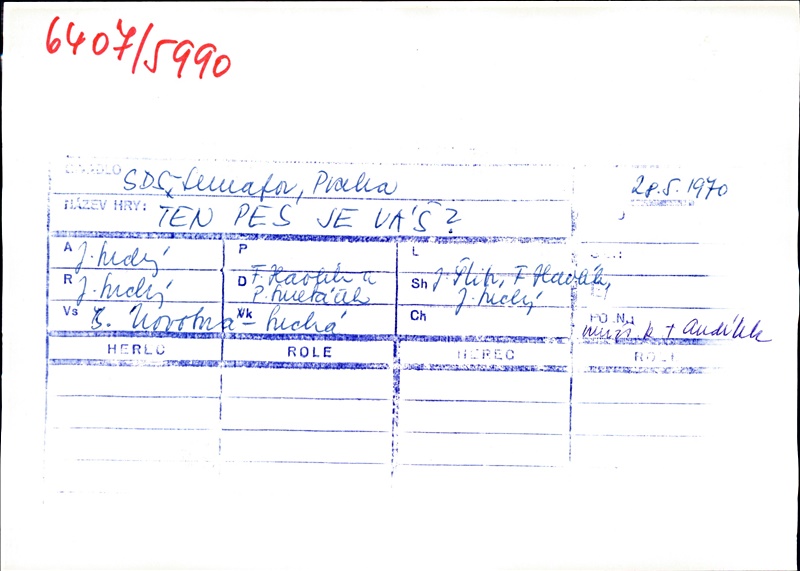 6407/5990
DIVADLO SDS, Semafor, Praha 28.5.1970
NÁZEV HRY: TEN PES JE VÁŠ?
A J. Suchý P L
R J. Suchý D F. Havlík a P. Sh J. Šlitr, F. Havlík, J. Suchý
Vs Novotná - Suchá Vk Ch POZN.:
HEREC ROLE HEREC ROLE